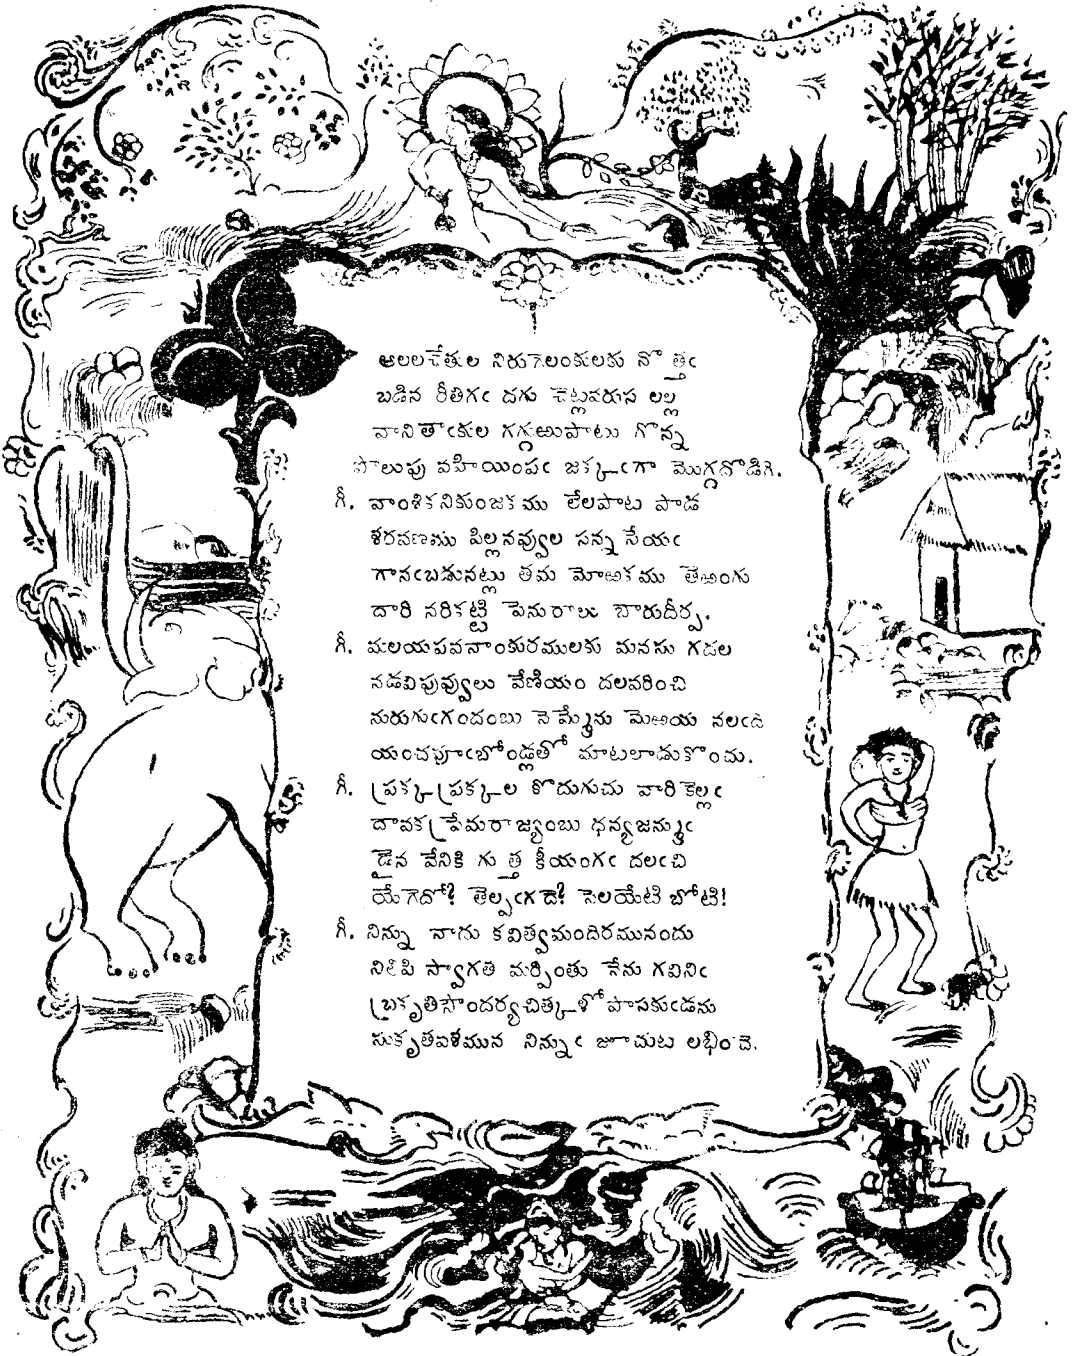 అలలచేతుల నిరుగెలంకులకు నొ త్తఁ
బడిన రీతిగఁ దగు చెట్లవరుస లల్ల
వానితాఁకుల గగ్గఱుపాటు గొన్న
పొలుపు వహియింపఁ జక్కఁగా మొగ్గదొడిగి.
గీ. వాంశికనికుంజకము లేలపాట పాడ
శరవణము పిల్లనవ్వుల సన్న సేయఁ
గానఁబడునట్లు తమ మోఱకము తెఱంగు
దారి నరికట్టి పెనురాలు బారుదీర్ప.
గీ. మలయపవనాంకురములకు మనసు గదల
నడవిపువ్వులు వేణియం దలవరించి
నురుగుఁగందంబు నెమ్మేను మెఱయ నలఁది
యంచపూఁబోండ్లతో మాటలాడుకొంచు.
గీ. ప్రక్కప్రక్కల కొదుగుచు వారికెల్లఁ
దావకప్రేమరాజ్యంబు ధన్యజన్ముఁ
డైన వేనికి గు త్త కీయంగఁ దలఁచి
యేగెదో? తెల్పఁగదె? సెలయేటి బోటి!
గీ. నిన్ను నాదు కవిత్వమందిరమునందు
నిలిపి స్వాగతి మర్పింతు నేను గవినిఁ
బ్రకృతిసౌందర్యచిత్కళోపాసకుఁడను
సుకృతవశమున నిన్నుఁ జూచుట లభించె.